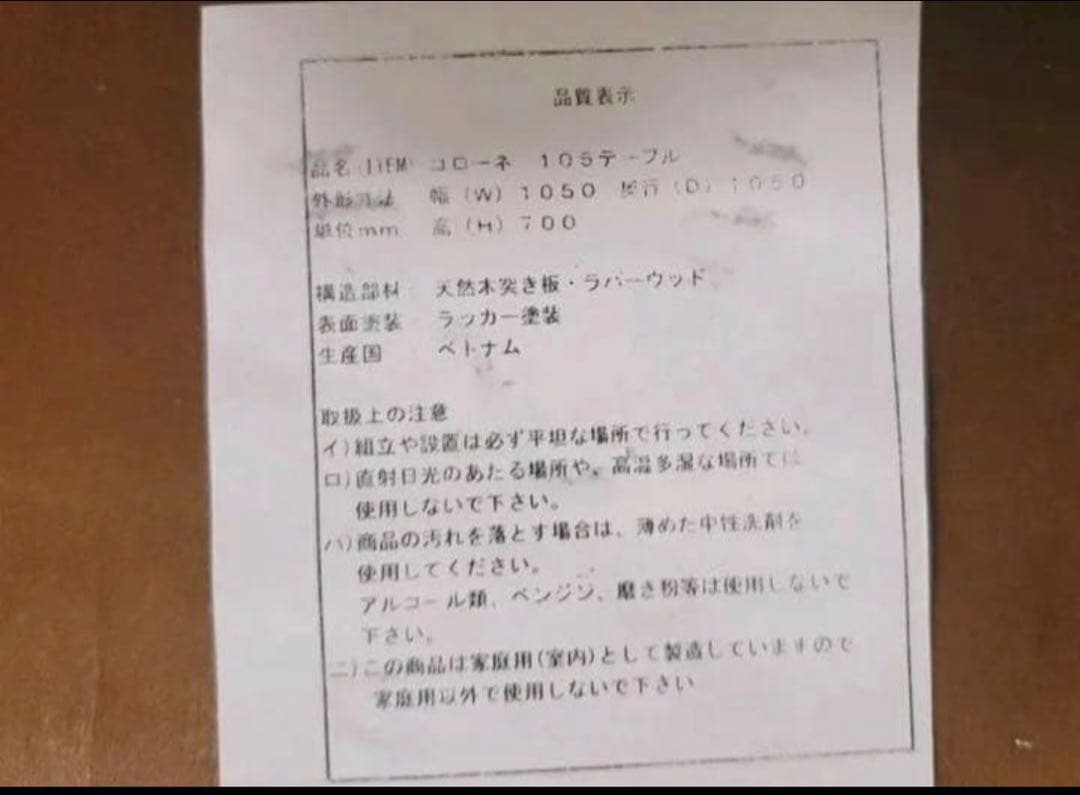 品質表示
品名(ITEM) コローネ 105テーブル
外形寸法 幅(W)1050 奥行(D)1050
単位mm 高(H)700
構造部材 天然木突き板・ラバーウッド
表面塗装 ラッカー塗装
生産国 ベトナム
取扱上の注意
イ)組立や設置は必ず平坦な場所で行ってください。
ロ)直射日光のあたる場所や、高温多湿な場所では
使用しないで下さい。
ハ)商品の汚れを落とす場合は、薄めた中性洗剤を
使用してください。
アルコール類、ベンジン、磨き粉等は使用しないで
下さい。
ニ)この商品は家庭用(室内)として製造していますので
家庭用以外で使用しないで下さい